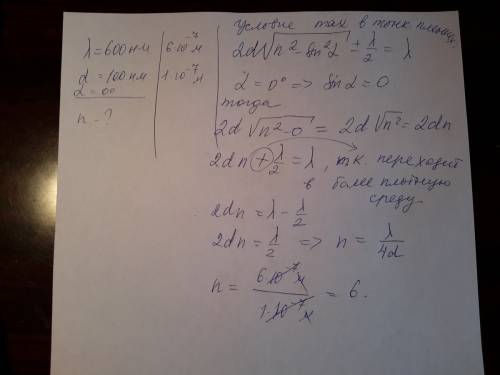 λ = 600 нм | 6·10⁻⁷ м
d = 100 нм | 1·10⁻⁷ м
α = 0°
n - ?
Условие max в тонк пленке
2d√(n² - sin²α) ± λ/2 = λ
α = 0° => sin α = 0
тогда
2d √(n² - 0) = 2d √n² = 2dn
2dn + λ/2 = λ, т.к. переходит
в более плотную
среду.
2dn = λ - λ/2
2dn = λ/2 => n = λ/4d
n = 6·10⁻⁷ м / 1·10⁻⁷ м = 6.